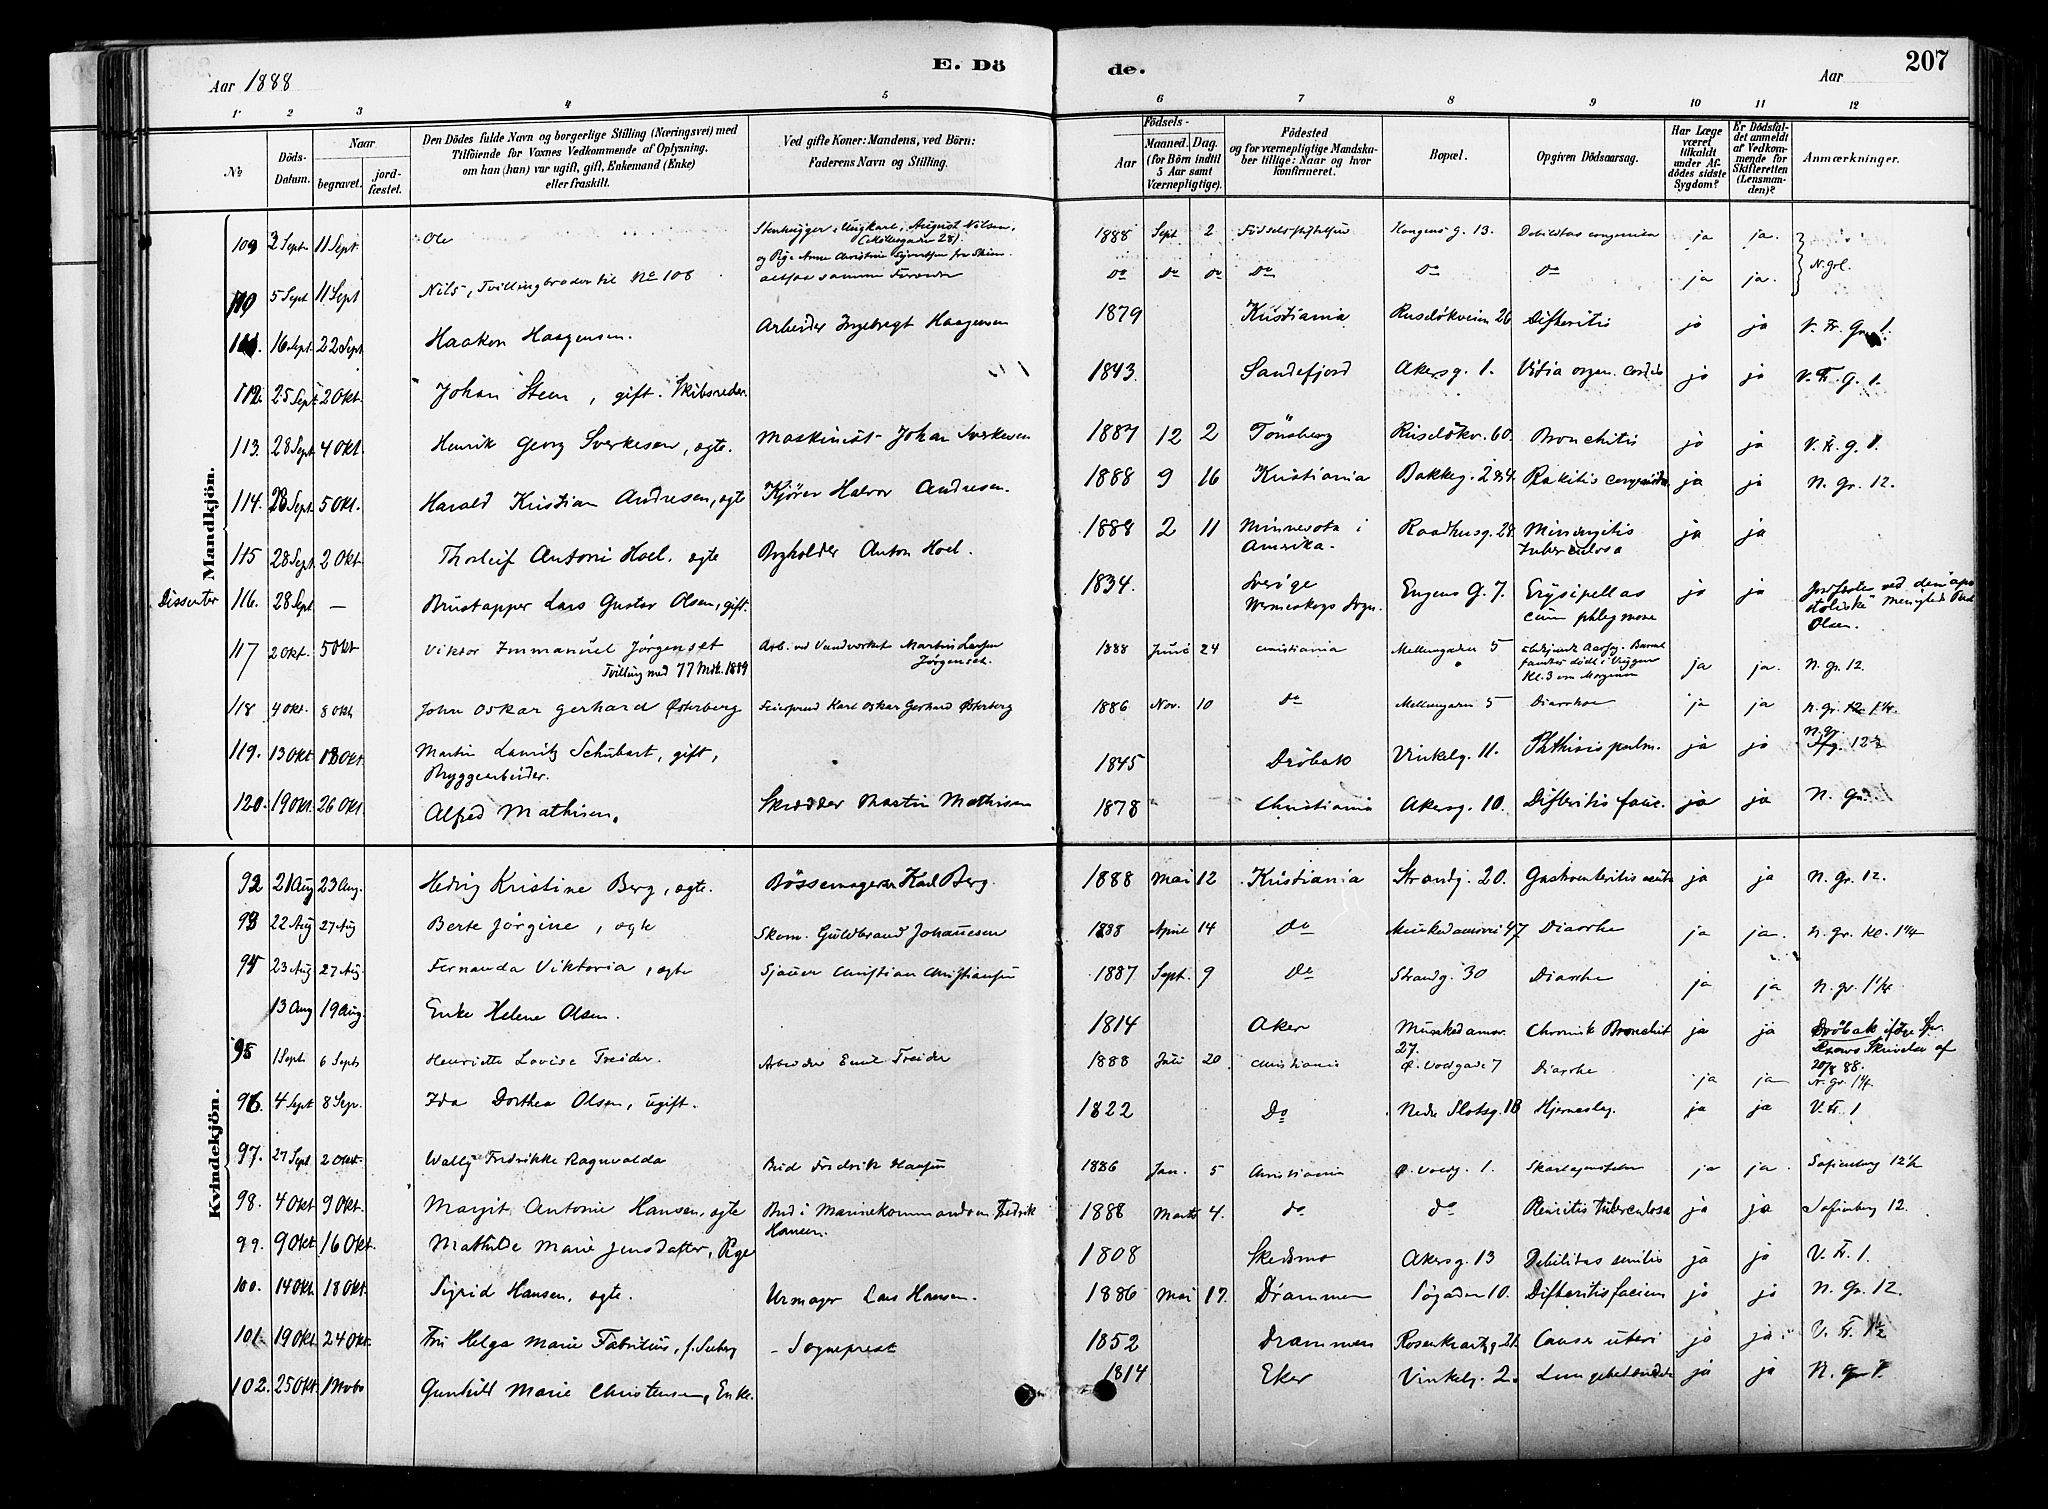 Aar 1888
E. Dö
de.
Aar
207
1 2 3 4 5 6 7 8 9 10 11 12
No
Döds-Datum.
Naar
begravet.
jord-fæstet.
Den Dödes fulde Navn og borgerlige Stilling (Næringsvei) med
Tilföiende for Voxnes Vedkommende af Oplysning,
om han (hun) var ugift, gift, Enkemand (Enke)
eller fraskilt.
Ved gifte Koner: Mandens, ved Börn:
Faderens Navn og Stilling.
Födsels-
Aar
Maaned. Dag.
(for Börn indtil
5 Aar samt
Værnepligtige).
Födested
og for værnepligtige Mandska-
ber tillige: Naar og hvor
konfirmeret.
Bopæl.
Opgiven Dödsaarsag.
Har Læge
været
tilkaldt
under Af-
dödes sidste
Sygdom?
Er Dödsfal-
det anmeldt
af Vedkom-
mende for
Skifteretten
(Lensman-
den)?
Anmærkninger.
Mandkjön.
109 2 Sept 11 Sept Ole Stenhugger, Ungkarl, August Nilsen, 1888 Sept 2 Kongens g. 13. Debilitas congenita ja ja.
og Pige Anne Christine
110 5 Sept 11 Sept Nils, Tvillingbroder til No 108 altsaa samme Forældre Do Do Do Do Do Do ja ja. N. grl.
111. 16 Sept. 22 Sept Haakon Haagensen. Arbeider Ingebregt Haagensen 1879 Kristiania Ruselökveien 26 Difteritis ja ja V. Fr. Gr. 1.
112. 25 Sept 2 Okt. Johan Steen, gift. Skibsreder 1843. Sandefjord Akersg. 1. Vitia organ. cordis ja ja V. Fr. g. 1.
113. 28 Sept. 4 Okt. Henrik Georg Sverkesen, ægte. Maskinist Johan Sverkesen 1887 12 2 Tönsberg Ruselökv. 60. Bronchitis ja ja V. Fr. g. 1.
114. 28 Sept. 5 Okt. Harald Kristian Andresen, ægte Kjörer Halvor Andresen. 1888 9 16 Kristiania Bakkeg. 2 & 4. Rakitis congenita ja ja N. Gr. 12.
115 28 Sept 2 Okt. Thorleif Antoni Hoel. ægte Bogholder Anton Hoel. 1888 2 11 Minnesota i Amerika. Raadhusg. 28. Miningitis tuberculosa ja ja
Dissenter 116. 28 Sept. — Lars Gustav Olsen, gift. 1834. Sverige Værmeskogs Sogn. Engens G. 7. Erysipellas cum phlegmone ja ja Jordfæstet ved den apostoliske Menigheds Præst Olsen.
117 2 Okt. 5 Okt Viktor Immanuel Jørgenset Arb. ved Vandverket Martin Larsen Jørgenset. 1888 Juni 24 Christiania Mellemgaden 5 ja ja. N. gr. 12
Tvilling med 77 Mdk. 1889
118 4 Okt. 8 Okt John Oskar Gerhard Østerberg Karl Oskar Gerhard Østerberg 1886 Nov. 10 Do Mellemgaden 5 Diarrhoe ja ja N. gr. 12 1¼.
119. 13 Okt 18 Okt. Martin Lauritz Schubart, gift, Bryggearbeider. 1845 Dröbak Vinkelg. 11. Phthisis pulm. ja ja
120. 19 Okt. 26 Okt. Alfred Mathisen. Skrædder Martin Mathisen 1878 Christiania Akersg. 10. Difteritis fauc. ja ja N. Gr. 1
Kvindekjön.
92 21 Aug 23 Aug. Hedvig Kristine Berg, ægte. Bössemager Karl Berg. 1888 Mai 12 Kristiania Strandg. 20. Gastroenteritis acuta ja ja N. gr. 12.
93 22 Aug 27 Aug Berte Jörgine, ægte Skom. Guldbrand Johannesen 1888 April 14 Do Munkedamsvei 47 Diarrhe ja ja. N. gr. Kl. 1¼
94 23 Aug 27 Aug. Fernanda Viktoria, ægte Sjauer Christian Christiansen 1887 Sept. 9 Do Strandg. 30 Diarrhe ja ja N. gr. 1¼.
13 Aug 19 Aug. Enke Helene Olsen. 1814 Aker Munkedamsv. 27. Chronisk Bronchit ja ja Dröbak ifölge Spr. Skrivelse af 20/8 88.
95 1 Septr 6 Septr Henriette Lovise Treider. Arbeider Emil Treider 1888 Juli 20 Christiania Ø. Voldgade 7 Diarrhe ja ja N. gr. 1¼.
96. 4 Sept 8 Sep. Ida Dorthea Olsen, ugift. 1822 Do Nedre Slotsg. 18 Hjerneslag. ja ja V. Fr. 1
97. 27 Sept 2 Oktr Wally Fredrikke Ragnvalda Bud Fredrik Hansen 1886 Jan. 5 Christiania Ø. Voldg. 1. Skarlagensfeber ja ja. Sofienberg 12½
98. 4 Okt 9 Okt. Margit Antonie Hansen, ægte Bud i Marinekommandoen Fredrik Hansen. 1888 Marts 4. do do tuberculosa ja ja Sofienberg 12.
99. 9 Okt 16 Okt. Mathilde Marie Jensdatter, Pige 1808 Skedsmo Akersg. 13 Debilitas senilis ja ja V. Fr. 1.
100. 14 Okt. 18 Okt. Sigrid Hansen, ægte. Urmager Lars Hansen. 1886 Mai 17. Drammen Söguden 10. Difteritis facium ja ja N. Gr. 12.
101. 19 Okt. 24 Okt. Fru Helga Marie Fabritius, f. Seeberg - Sogneprest 1852 Drammen Rosenkrantzg. 21. Cancer uteri ja ja V. Fr. 1½
102. 25 Okt. 1 Novb Gunhild Marie Christensen, Enke. 1814 Eker Vinkelg. 2. Lungebetændelse ja ja N. gr 1.